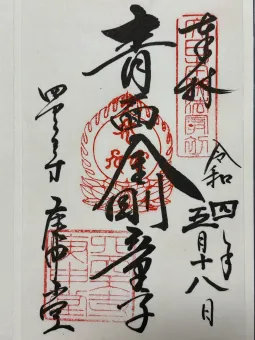 奉拝
令和四年
五月十八日
青面金剛童子
四天王寺 庚申堂